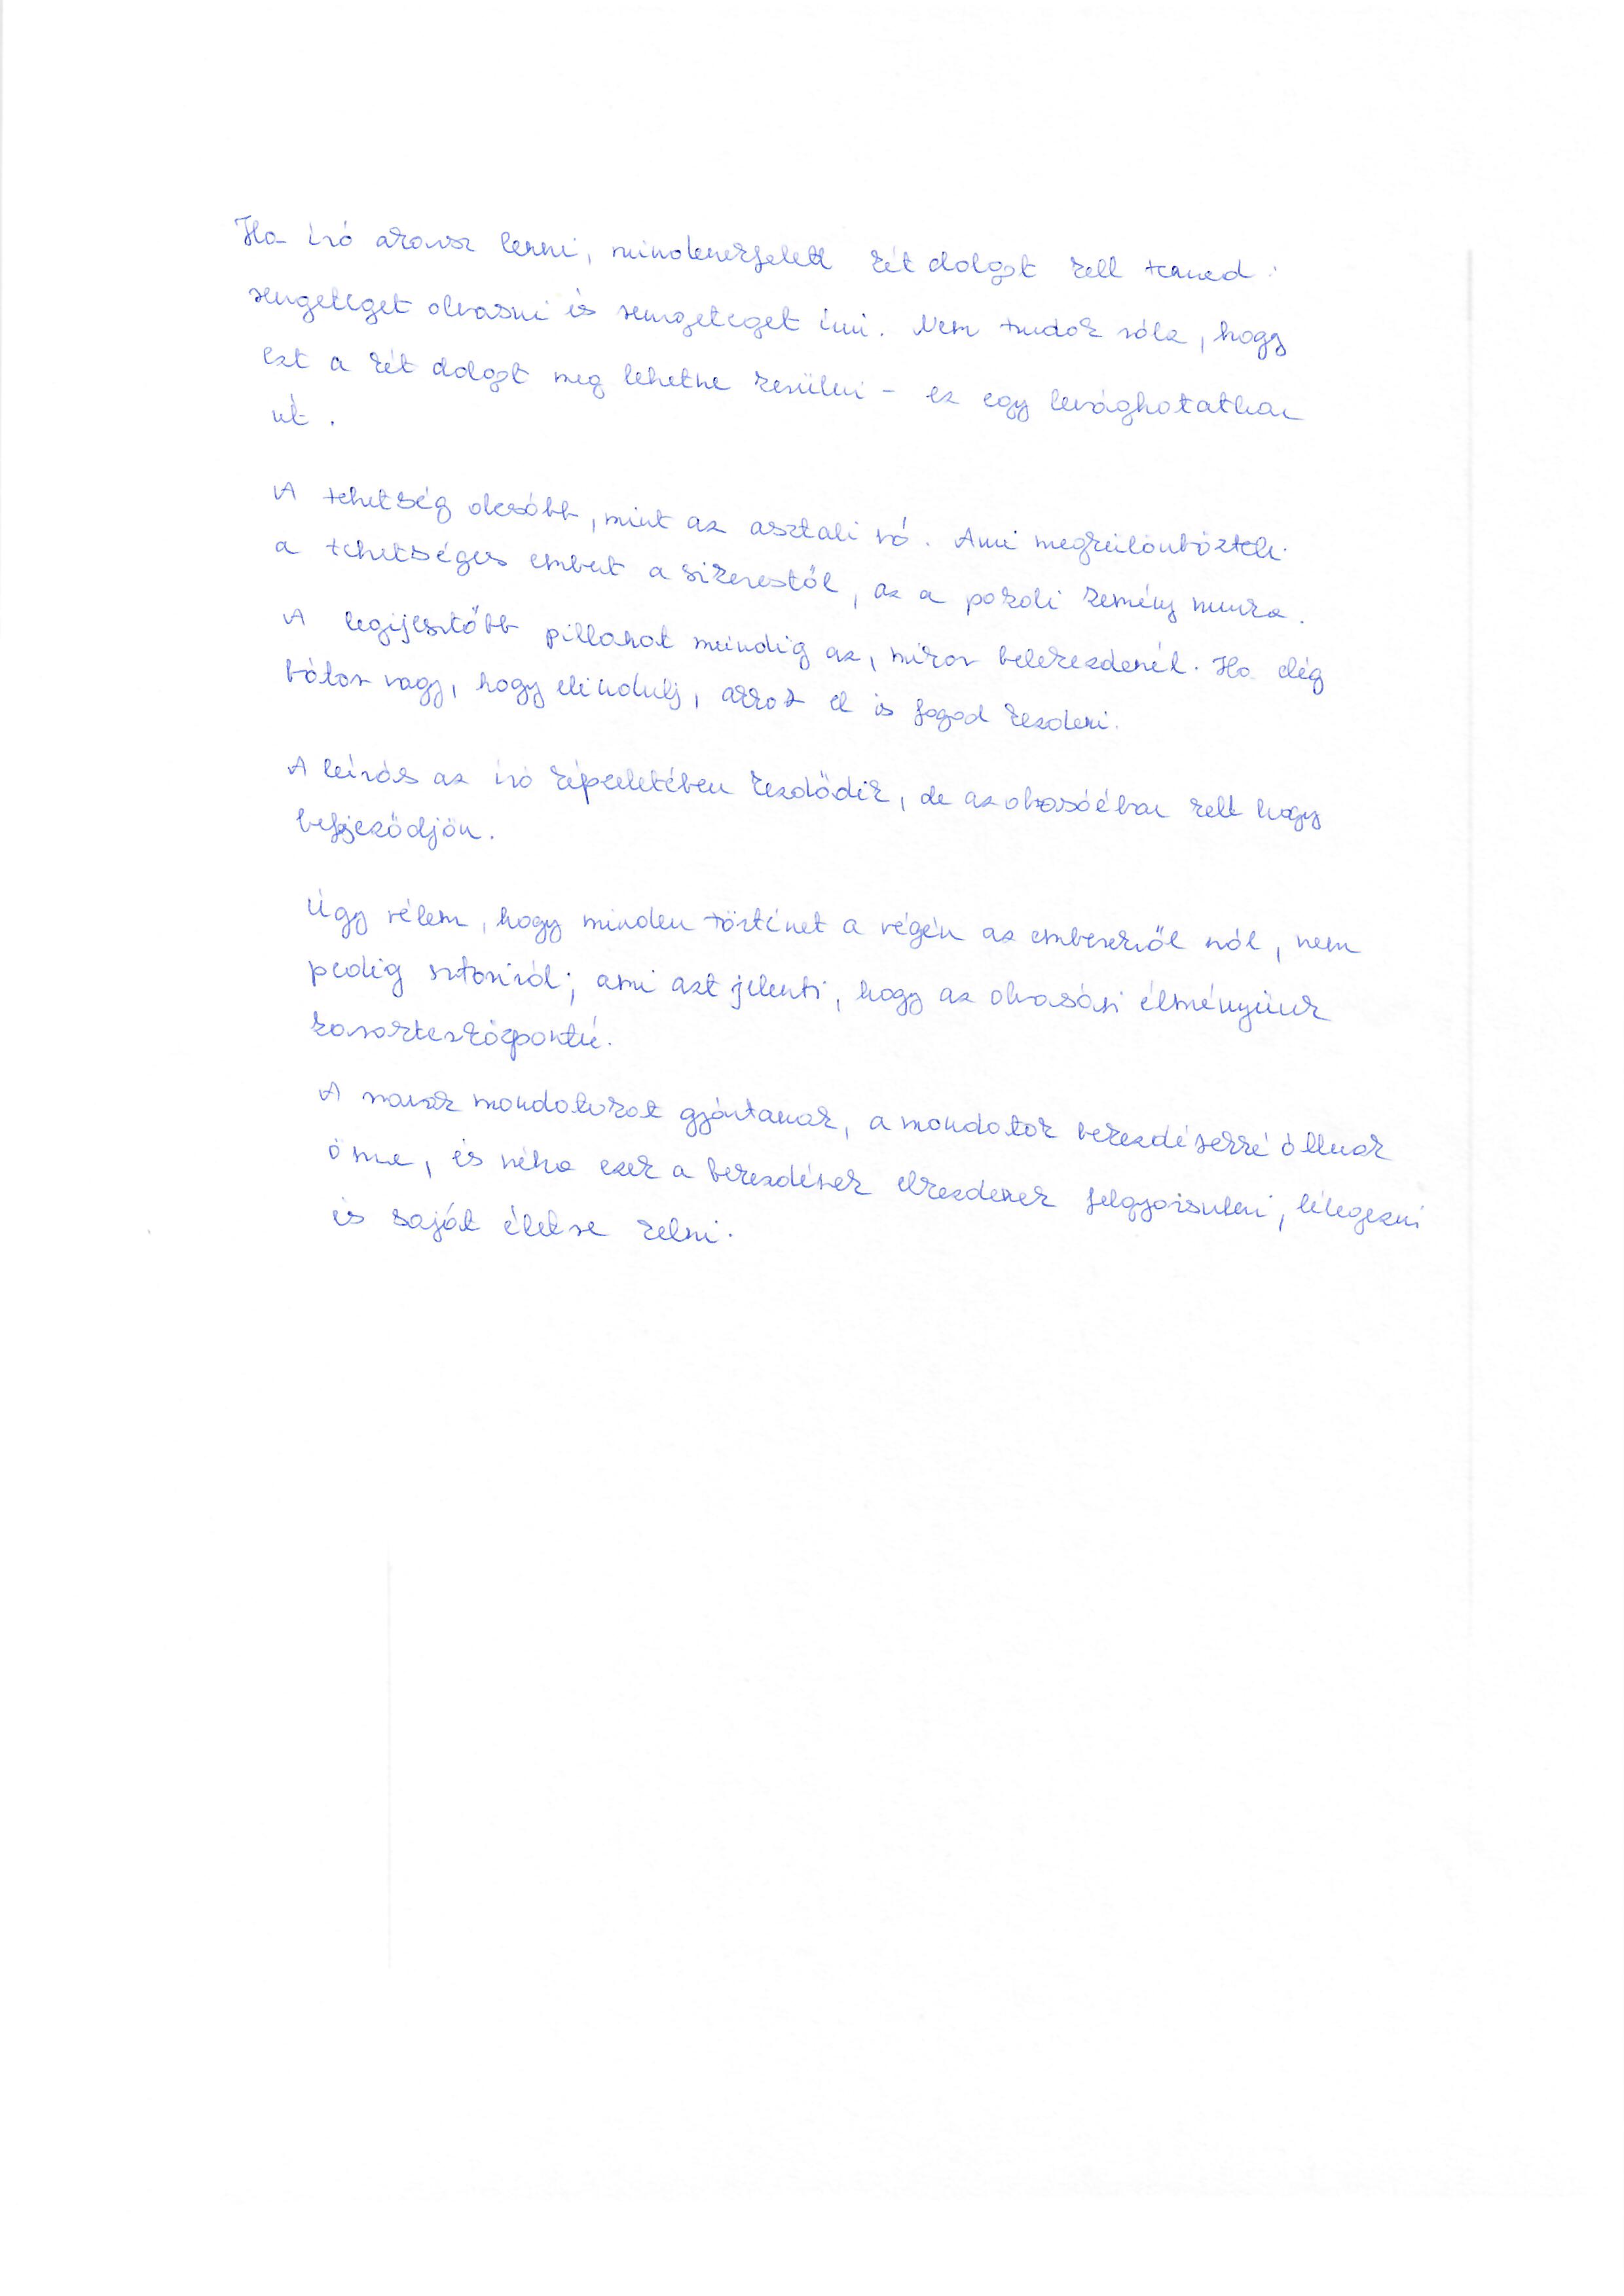 Ha író akarsz lenni, mindenekfelett két dolgot kell tenned:
rengeteget olvasni és rengeteget írni. Nem tudok róla, hogy
ezt a két dolgot meg lehetne kerülni – ez egy levághatatlan
út.
A tehetség olcsóbb, mint az asztali só. Ami megkülönbözteti
a tehetséges embert a sikerestől, az a pokoli kemény munka.
A legijesztőbb pillanat mindig az, mikor belekezdenél. Ha elég
bátor vagy, hogy elindulj, akkor el is fogod kezdeni.
A leírás az író képzeletében kezdődik, de az olvasóéban kell hogy
befejeződjön.
Úgy vélem, hogy minden történet a végén az emberekről szól, nem
pedig sztoriról; ami azt jelenti, hogy az olvasási élményünk
karakterközpontú.
A szavak mondatokat gyártanak, a mondatok bekezdésekké állnak
össze, és néha ezek a bekezdések elkezdenek felgyorsulni, lélegezni
és saját életre kelni.